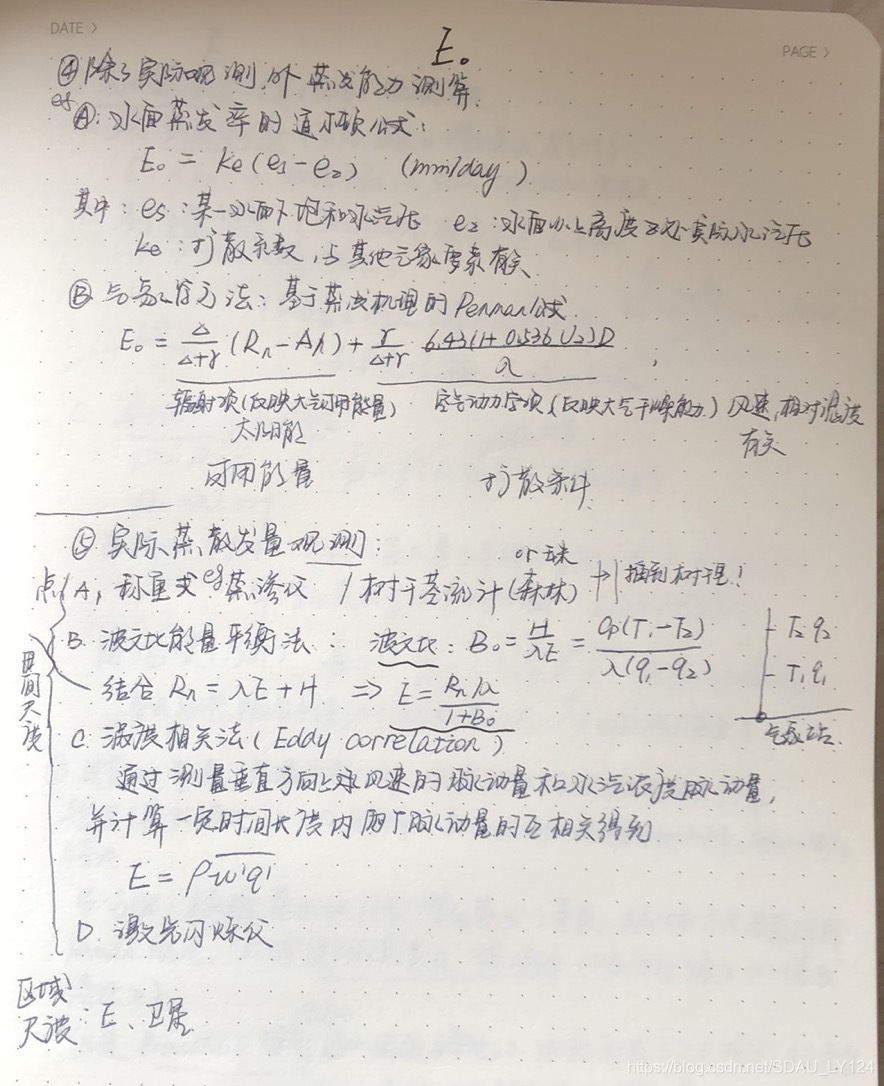 DATE >
PAGE >
E₀
④ 除了实际观测外 蒸发能力测算
eg
Ⓐ: 水面蒸发率的道尔顿公式:
E₀ = ke (es - ez) (mm/day)
其中: es: 某一水面下饱和水汽压 ez: 水面以上高度z处实际水汽压
ke: 扩散系数, 与其他气象要素有关
Ⓑ 气象学方法: 基于蒸发机理的Penman公式.
E₀ = Δ/(Δ+γ) (Rn - Ah) + γ/(Δ+γ) 6.43(1+0.536U₂)D/λ
辐射项(反映大气可用能量) 空气动力学项(反映大气干燥能力) 风速,相对湿度
太阳能 有关
可用能量 扩散条件
⑤ 实际蒸散发量观测:
or 玉米
点 A, 称重式eg蒸渗仪 / 树干茎流计(森林) → 插到树里!
B. 波文比能量平衡法: 波文比: B₀ = H/λE = Cp(T₁-T₂)/λ(q₁-q₂)
T₂ q₂
T₁ q₁
结合 Rn = λE + H ⇒ E = (Rn/λ)/(1+B₀)
气象站.
田间尺度
C. 涡度相关法(Eddy correlation)
通过测量垂直方向上风速的脉动量和水汽浓度脉动量,
并计算一定时间长度内两个脉动量的互相关得到
E = ρw'q'
D. 激光闪烁仪
区域
尺度: E、卫星
https://blog.csdn.net/SDAU_LY124